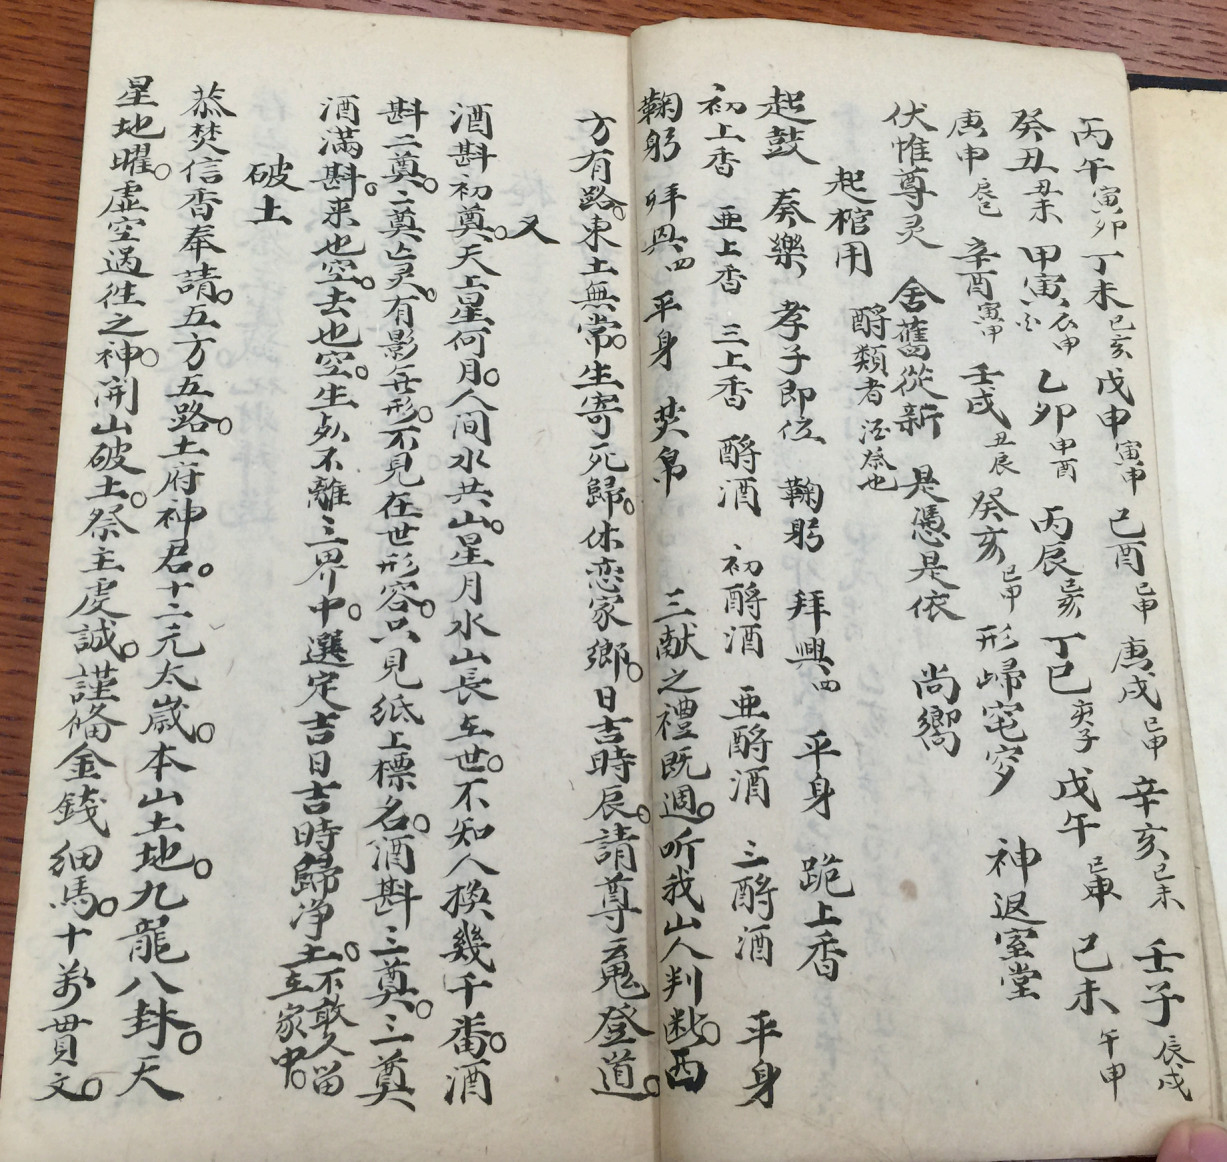 丙午寅卯 丁未己亥 戊申寅申 己酉巳申 庚戌巳申 辛亥己未 壬子辰戌
癸丑丑未 甲寅 乙卯申酉 丙辰巳亥 丁巳庚子 戊午 己未午申
庚申辰巳 辛酉寅申 壬戌丑辰 癸亥巳申 形歸窀穸 神返室堂
伏惟尊灵 舍舊從新 是憑是依 尚嚮
起棺用 酹類者 酒祭也
起鼓 奏樂 孝子即位 鞠躬 拜興四 平身 跪上香
初上香 亜上香 三上香 酹酒 初酹酒 亜酹酒 三酹酒 平身
鞠躬 拜興四 平身 焚帛 三献之禮既週。听我山人判断。西
方有路。東土無常。生寄死歸。休恋家鄉。日吉時辰。請尊霊魂登道。
又
酒斟初奠。天上星何月。人间水共山。星月水山長在世。不知人換幾千番。酒
斟二奠。二奠亡灵。有影無形。不見在世形容。只見纸上標名。酒斟三奠。三奠
酒满斟。来也空。去也空。生死不離三界中。選定吉日吉時歸净土。不敢久留在家中。
破土
恭焚信香奉請。五方五路。土府神君。十二元太歲。本山土地。九龍八卦。天
星地曜。虚空過往之神。開山破土。祭主虔誠。謹俻金錢细馬。十萬貫文。